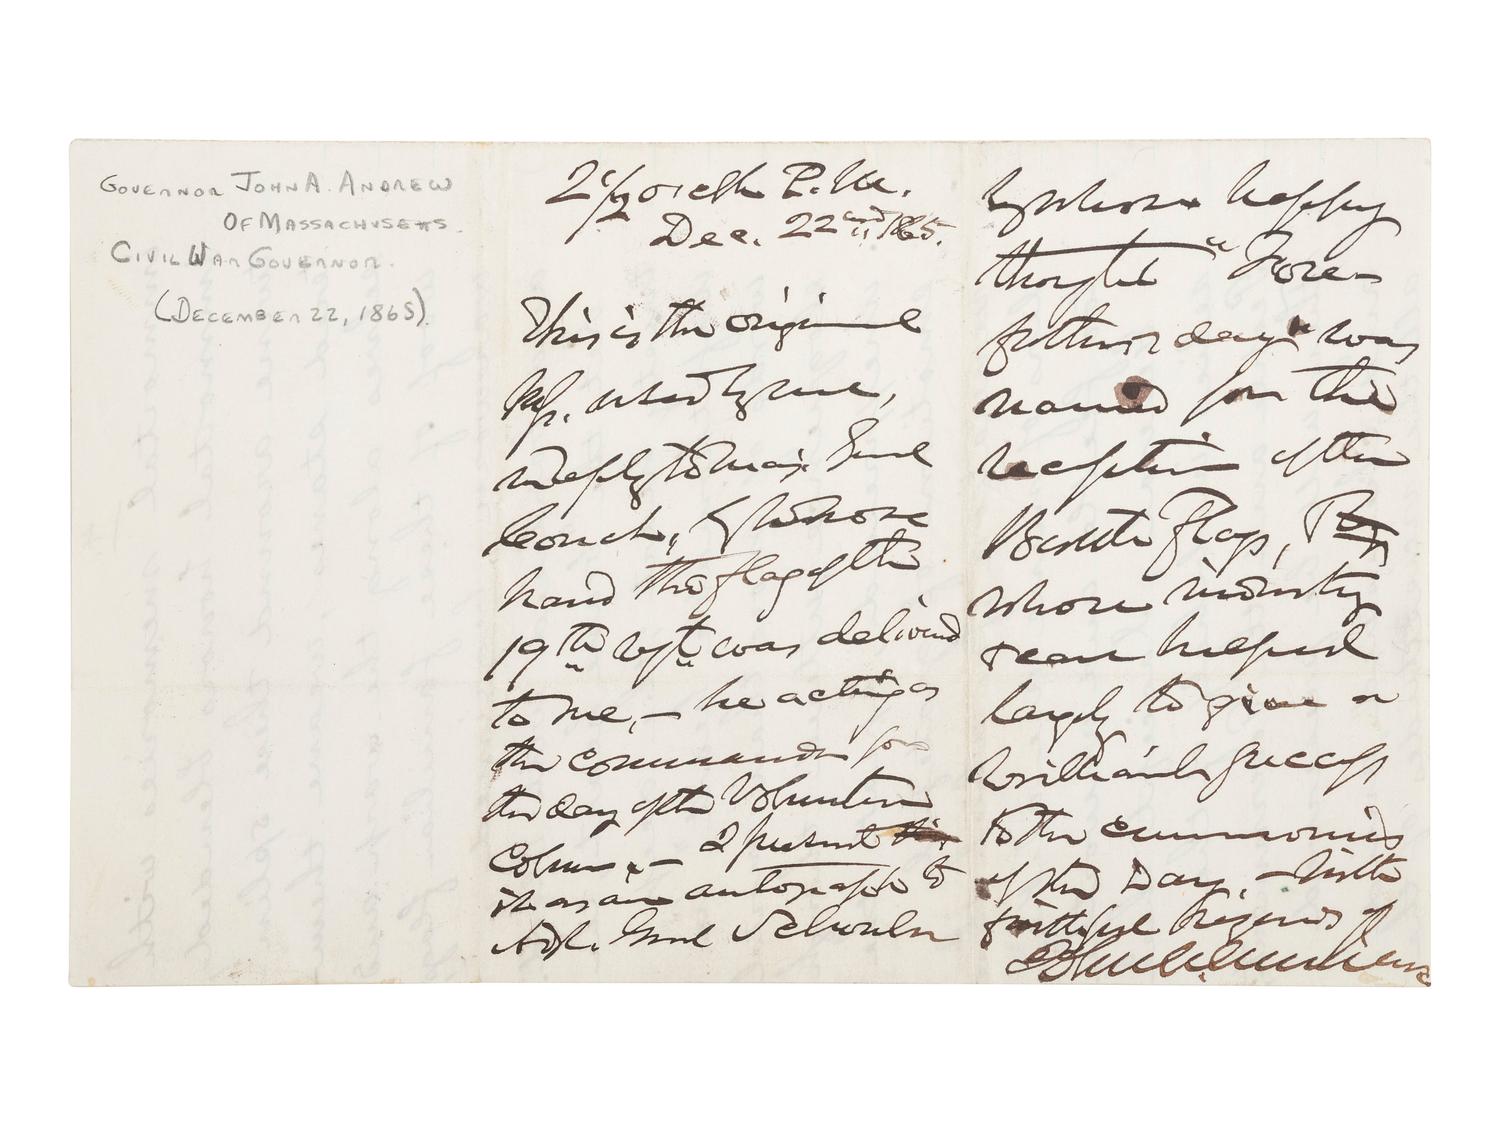 GOVERNOR JOHN A. ANDREW
OF MASSACHUSETTS.
CIVIL WAR GOVERNOR.
(DECEMBER 22, 1865).
2 1/2 o'clk P.M.
Dec. 22nd, 1865.
This is the original
Ms. used by me,
in reply to Maj. Genl
Couch, by whose
hand the flag of the
19th regt. was delivered
to me, — he acting as
the commander for
the day of the Volunteer
Column — I present this
it as an autograph to
Adj. Genl Schouler
by whose happy
thought "Fore-
fathers day" was
named for the
reception of the
Battle Flags, By
whose industry
& care helped
largely to give a
brilliant success
to the ceremonies
of the Day, — With
faithful regards of